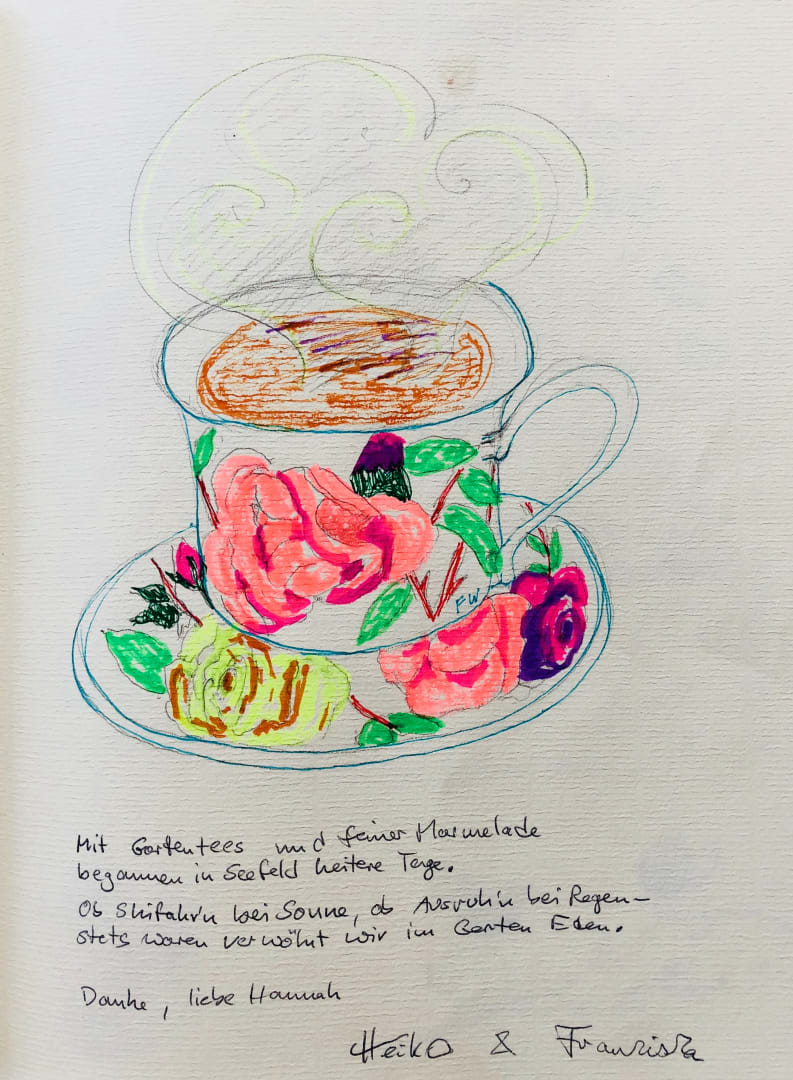 FW
Mit Gartentees und feiner Marmelade
begannen in Seefeld heitere Tage.
Ob Skifahr'n bei Sonne, ob Ausruh'n bei Regen –
stets waren verwöhnt wir im Garten Eden.
Danke, liebe Hannah
Heiko & Franziska